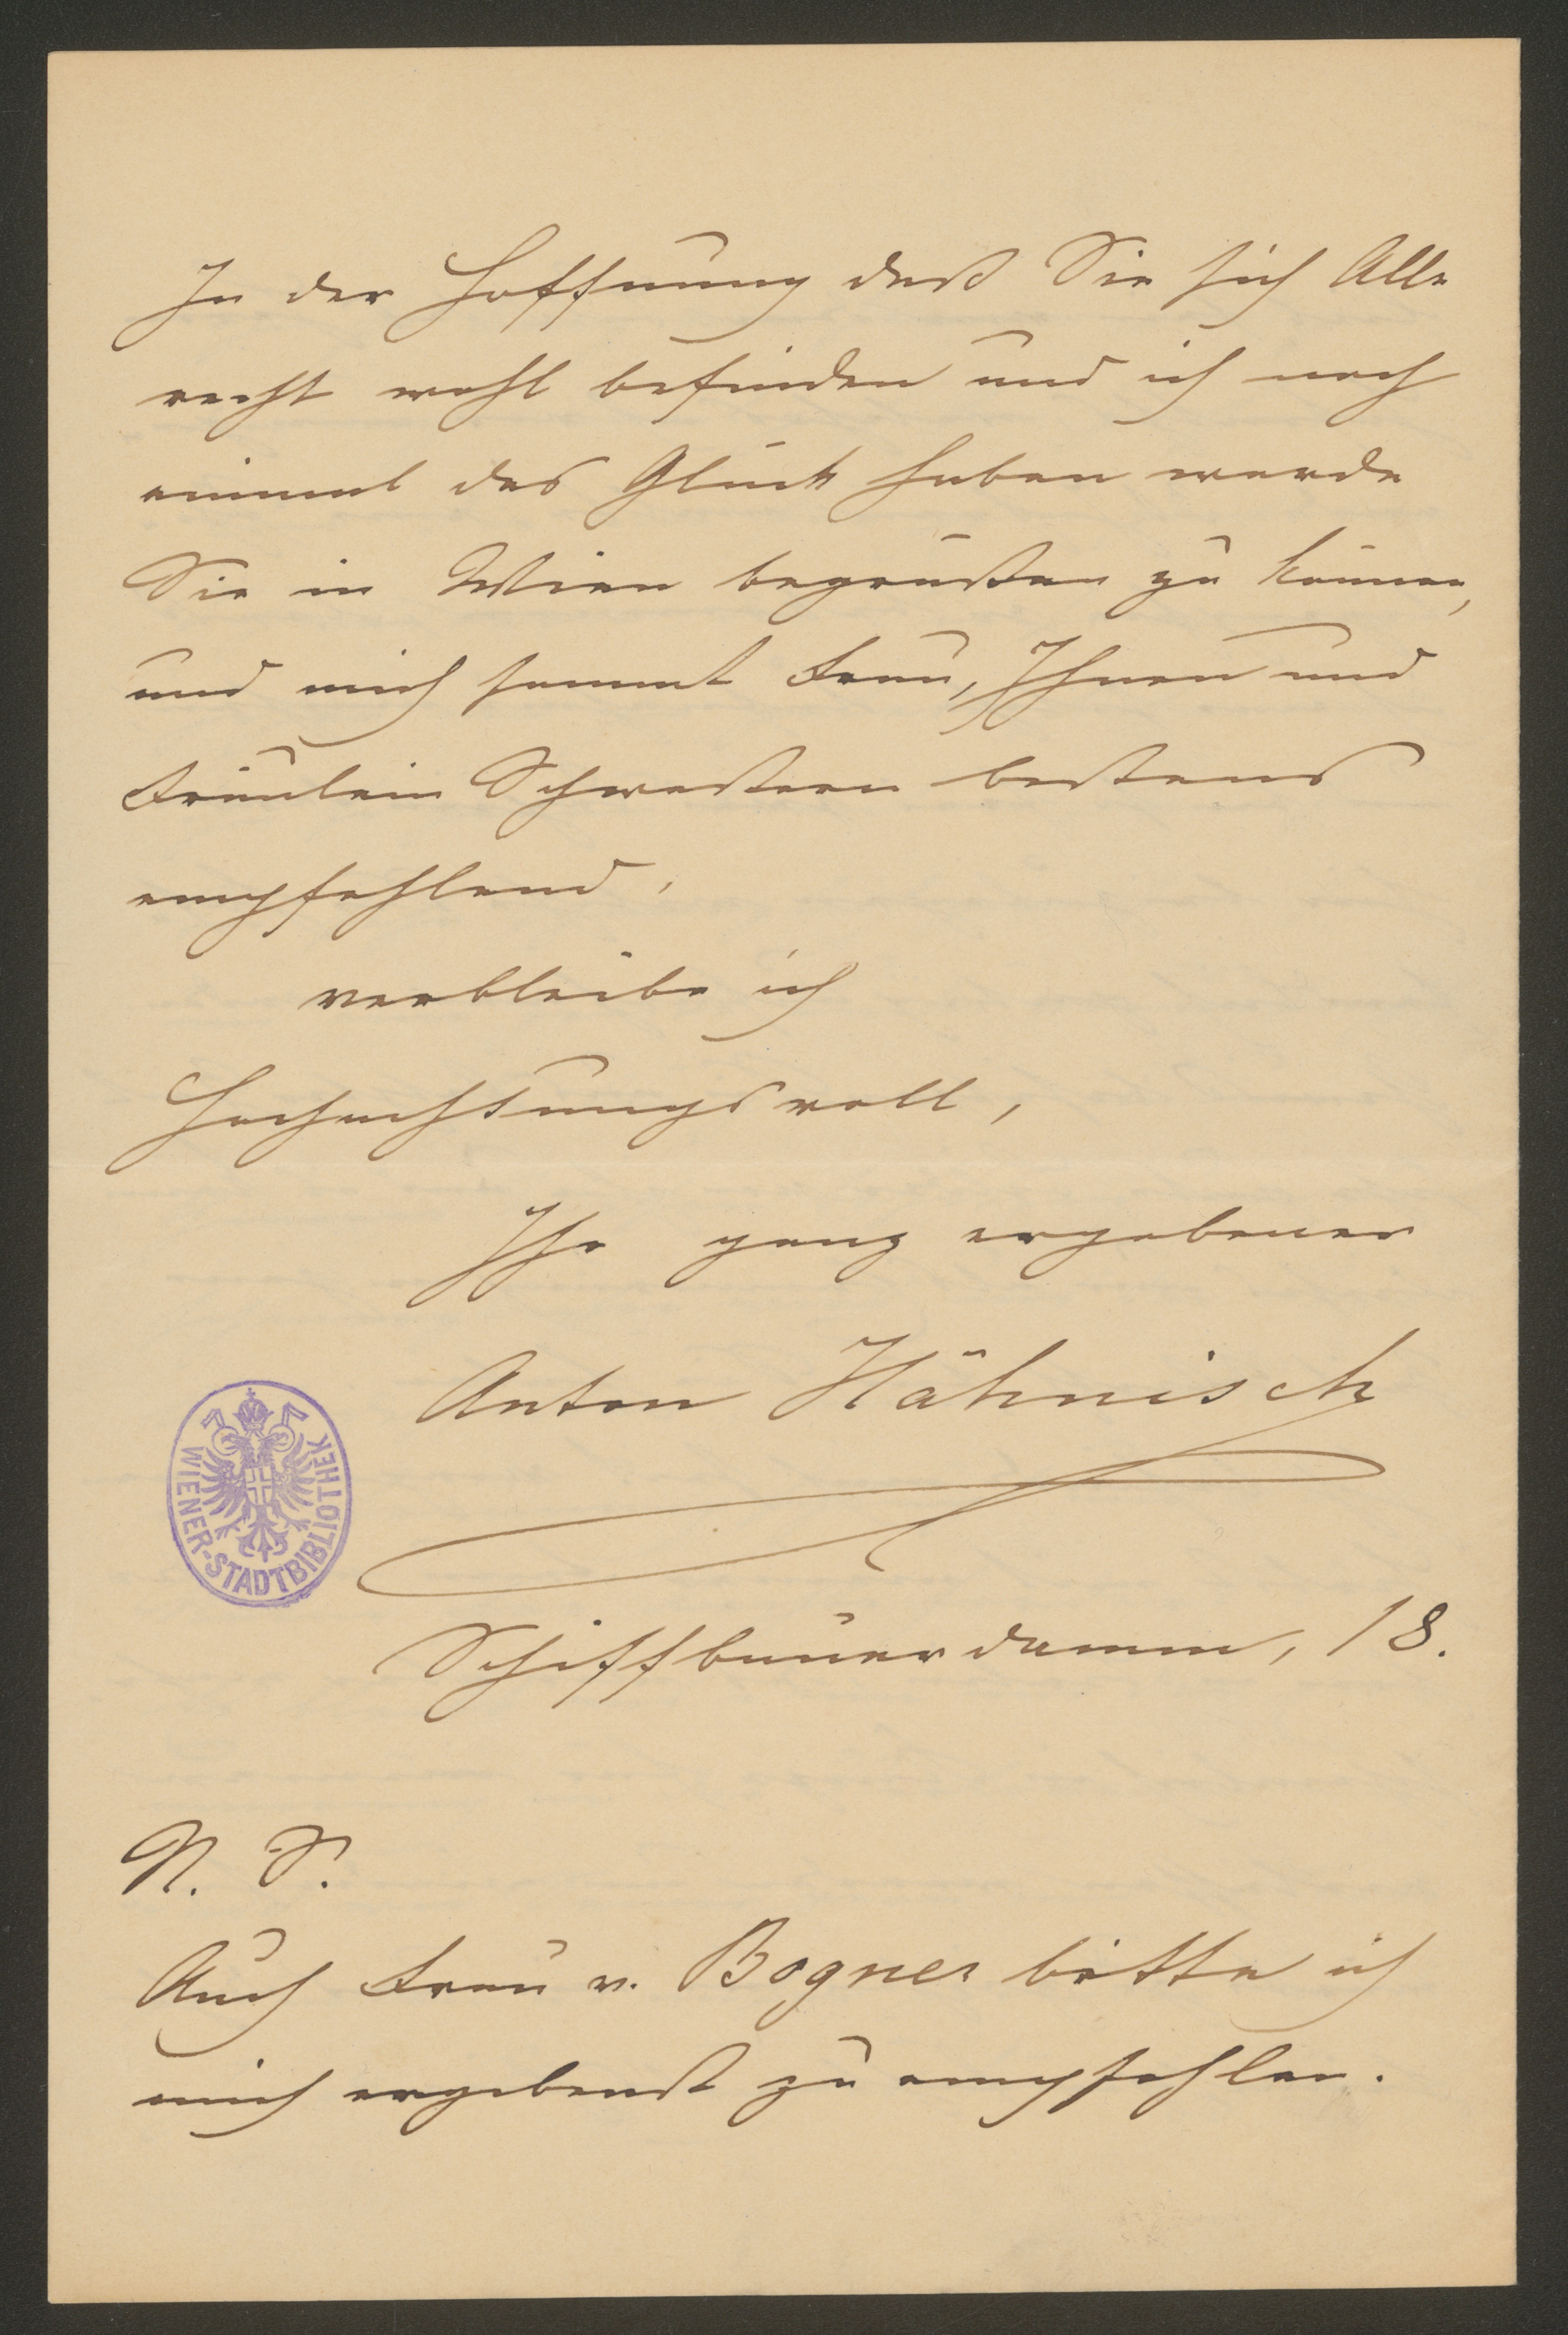 In der Hoffnung daß Sie sich Alle
recht wohl befinden und ich noch
einmal das Glück haben werde
Sie in Wien begrüßen zu können,
und mich sammt Frau, Ihnen und
Fräulein Schwestern bestens
empfehlend,
verbleibe ich
Hochachtungsvoll,
Ihr ganz ergebener
Anton Hähnisch
WIENER-STADTBIBLIOTHEK
Schiffbauerdamm, 18.
N. S.
Auch Frau v. Bogner bitte ich
mich ergebenst zu empfehlen.